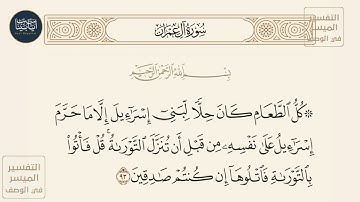 سُورَةُ آلِ عِمْرَانَ
التفسير
الميسر
في الوصف
بِسْمِ ٱللَّهِ ٱلرَّحْمَٰنِ ٱلرَّحِيمِ
۞ كُلُّ ٱلطَّعَامِ كَانَ حِلًّا لِّبَنِىٓ إِسْرَٰٓءِيلَ إِلَّا مَا حَرَّمَ
إِسْرَٰٓءِيلُ عَلَىٰ نَفْسِهِۦ مِن قَبْلِ أَن تُنَزَّلَ ٱلتَّوْرَىٰةُ ۗ قُلْ فَأْتُوا۟
بِٱلتَّوْرَىٰةِ فَٱتْلُوهَآ إِن كُنتُمْ صَٰدِقِينَ ٩٣
التفسير
الميسر
في الوصف